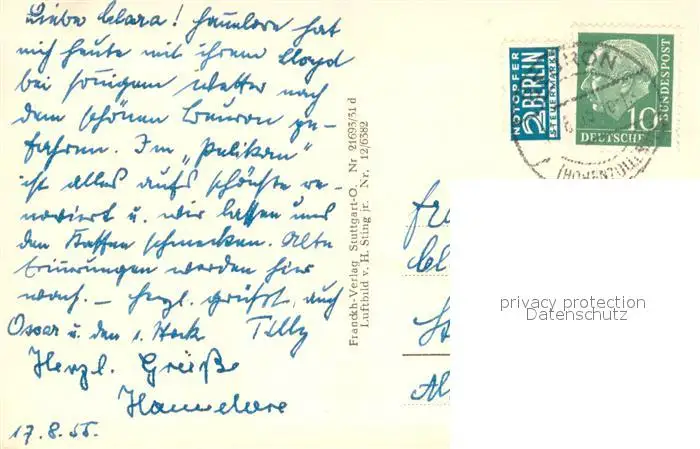 Liebe Clara! Hannelore hat
mich heute mit ihrem Lloyd
bei sonnigem Wetter nach
dem schönen Beuron ge-
fahren. Im „Pelikan"
ist alles aufs schönste re-
noviert u. wir lassen uns
den Kaffee schmecken. Alte
Erinnerungen werden hier
wach. – Herzl. grüßt, auch
Oscar u. den 1. Stock Tilly
Herzl. Grüße
Hannelore
17.8.55.
Franckh-Verlag Stuttgart-O. Nr 21693/51 d
Luftbild v. H. Sting jr. Nr. 12/6382
NOTOPFER
2 BERLIN
STEUERMARKE
10
DEUTSCHE
BUNDESPOST
(HOHENZOLL
privacy protection
Datenschutz